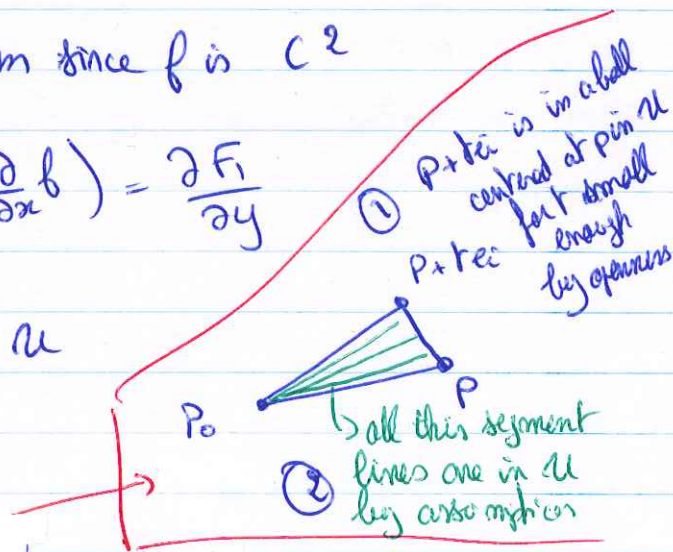 m since f is C²
∂/∂x f) = ∂F₁/∂y
U
① P+tei is in a ball
centered at p in U
for t small
enough
by openness
P+tei
P
P₀
↳ all this segment
② lines are in U
by assumption